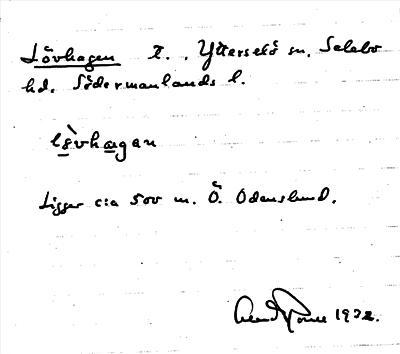 Lövhagen T., Ytterselö sn. Selebo
hd. Södermanlands l.
lövhagan
Ligger c:a 500 m. Ö. Odenslund.
1932.